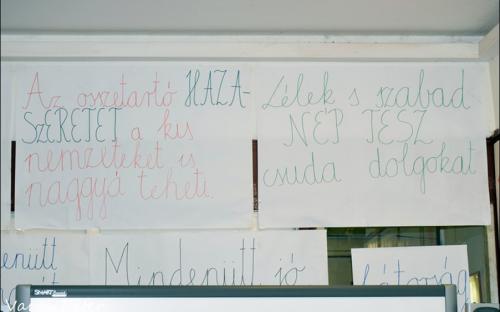 Az összetartó HAZA-
SZERETET a kis
nemzeteket is
naggyá teheti.
Lélek s szabad
NÉP TESZ
csuda dolgokat
enütt
Mindenütt jó
bátorság
SMART